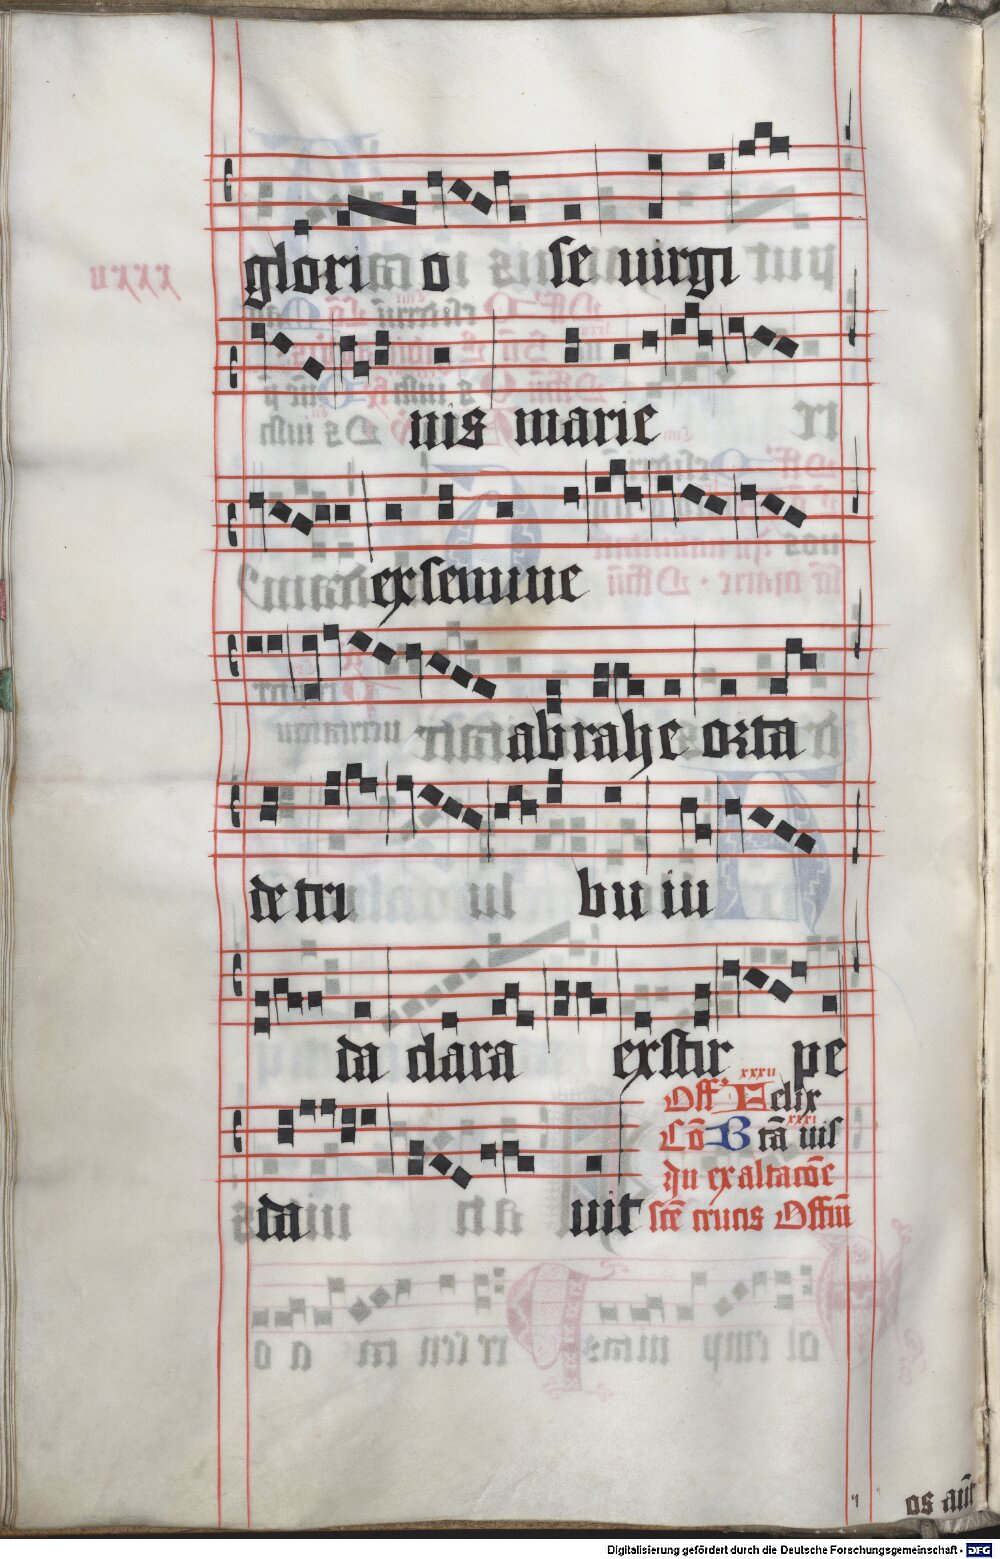 glori o se uirgi
nis marie
ex semine
abrahe orta
de tri bu iu
da clara ex stir pe
xxxii
Off Felix
xxxi
Cō Btā uis
da uit
In exaltacōe
scē crucis Offiū
os aūt
Digitalisierung gefördert durch die Deutsche Forschungsgemeinschaft - DFG